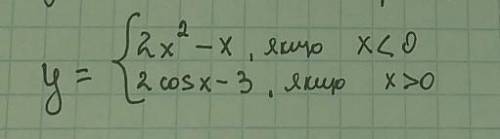 y = { 2x² - x, якщо x < 0
2 cosx - 3, якщо x > 0